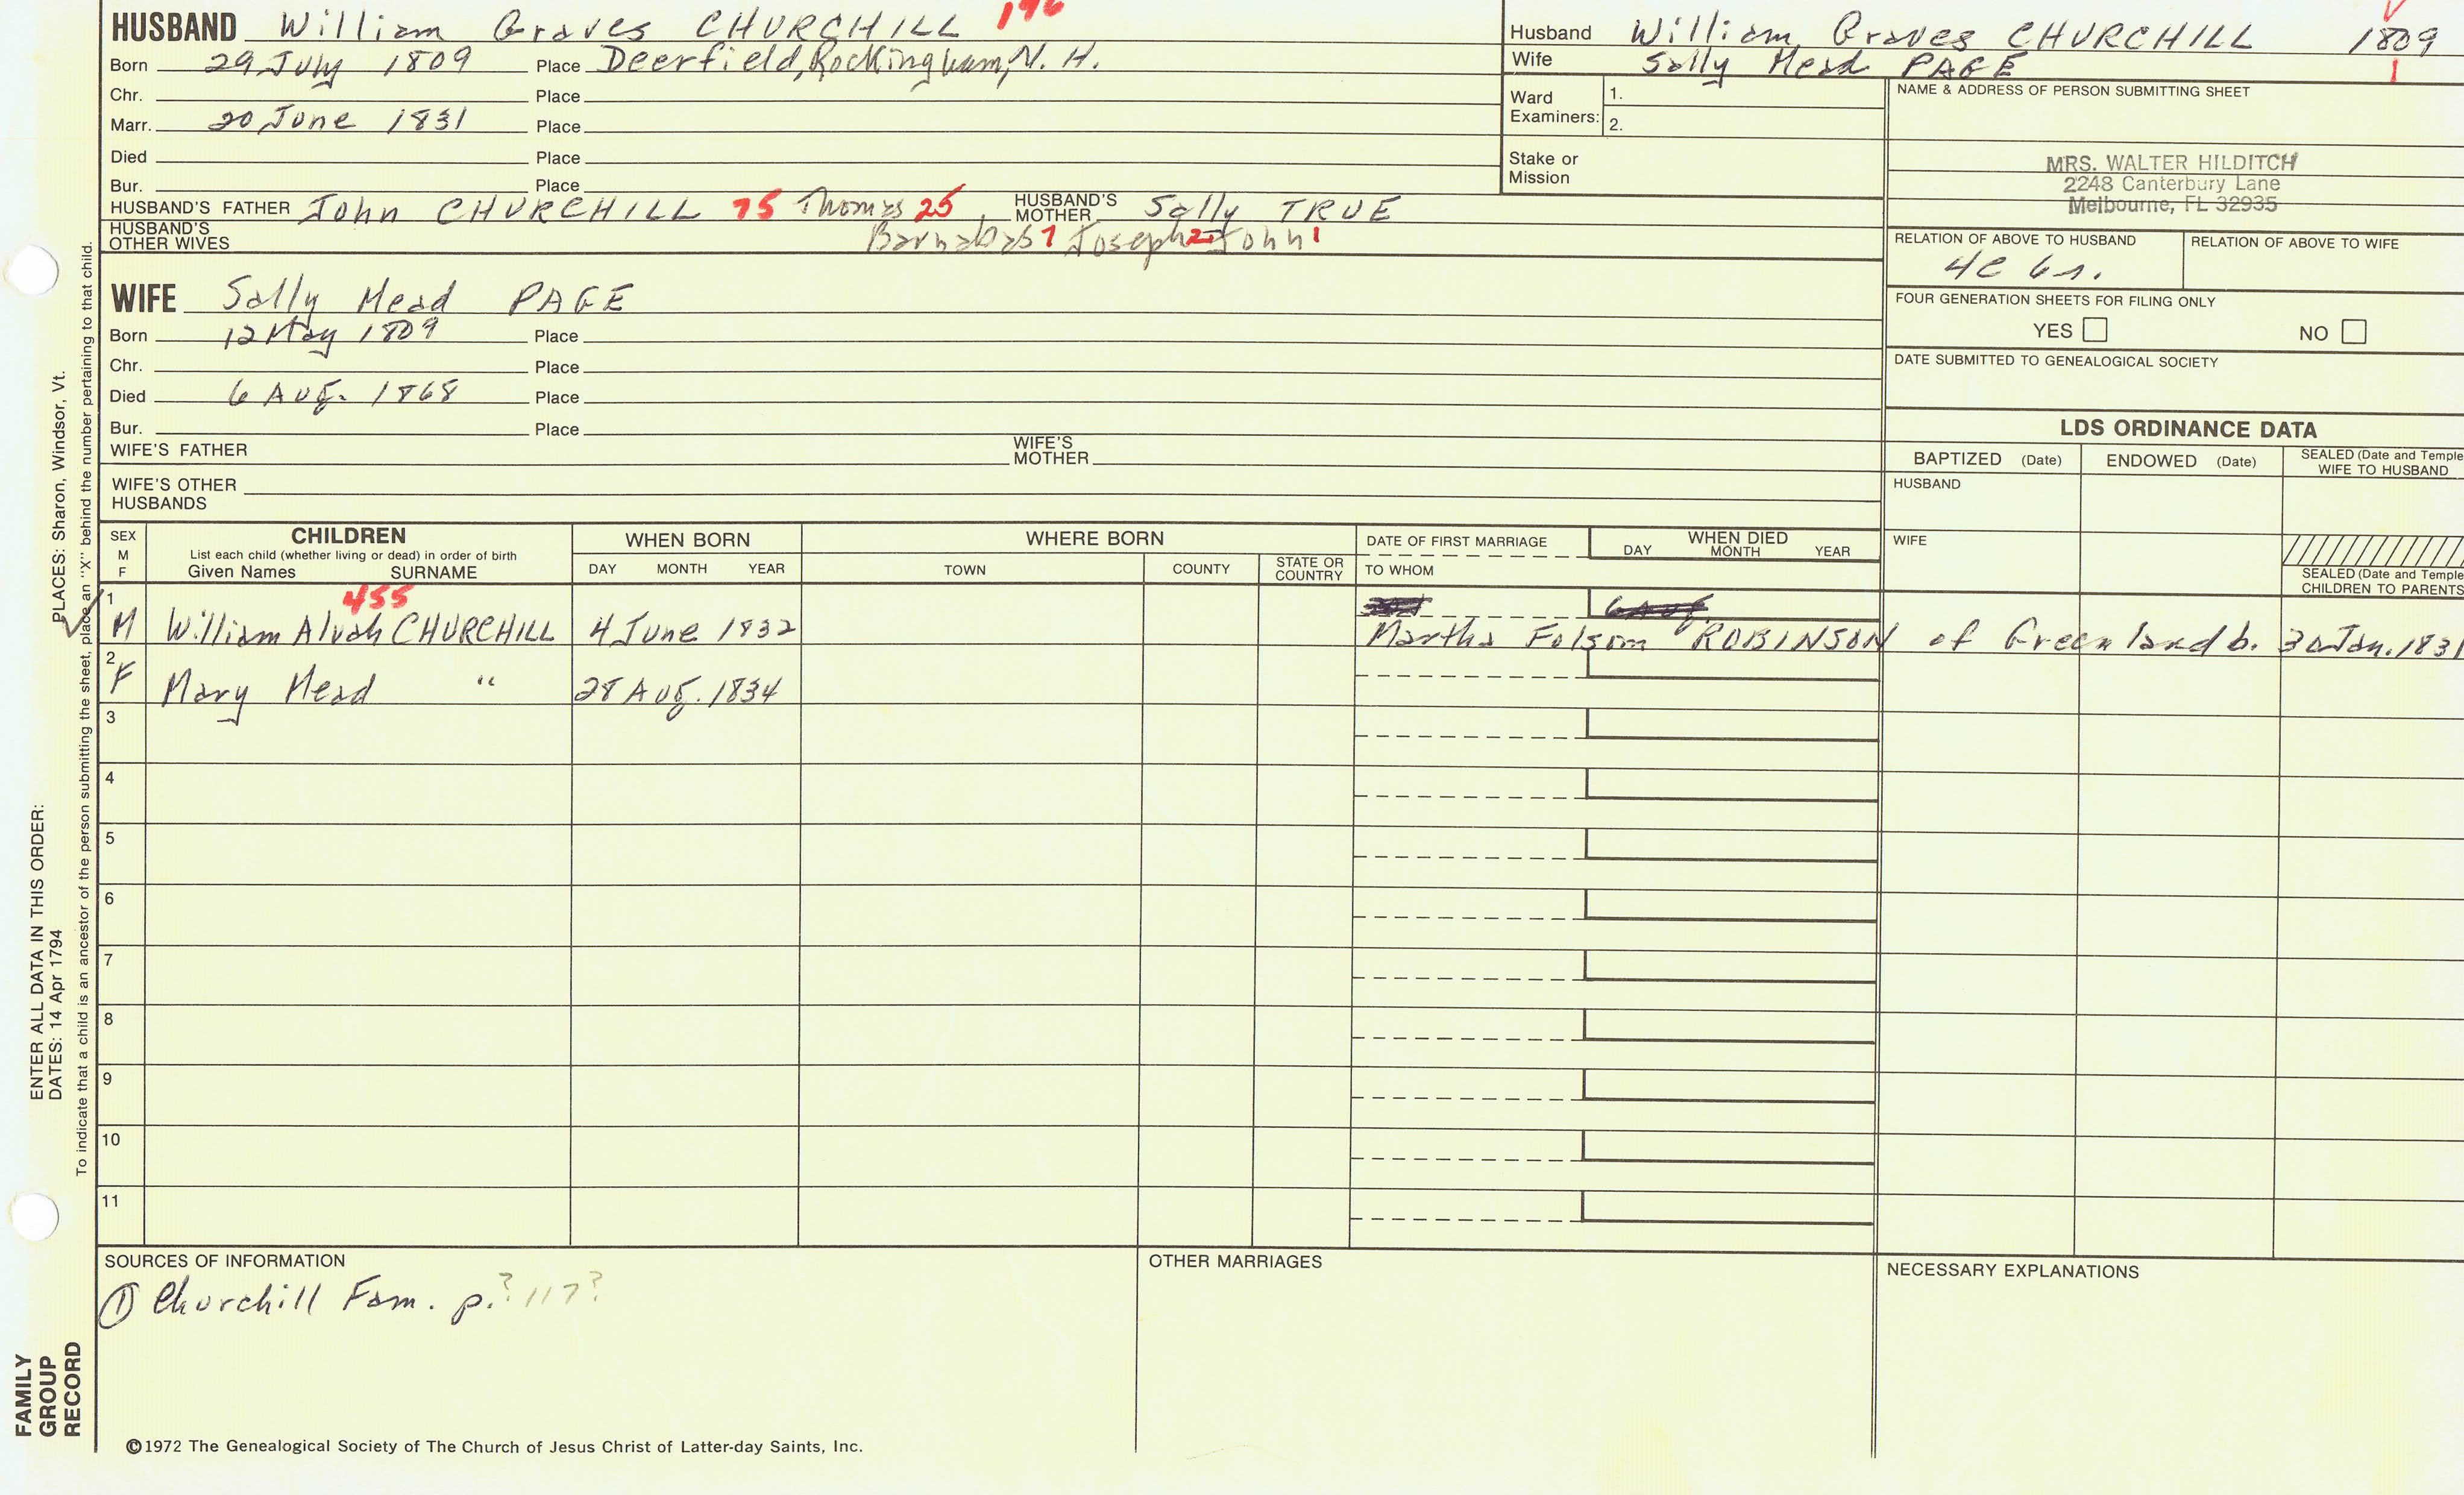 HUSBAND William Graves CHURCHILL 196
Born 29 July 1809 Place Deerfield, Rockingham, N. H.
Chr. Place
Marr. 20 June 1831 Place
Died Place
Bur. Place
HUSBAND'S FATHER John CHURCHILL 75 Thomas 25, HUSBAND'S MOTHER Sally TRUE
HUSBAND'S OTHER WIVES Barnabas 7 Joseph 2 John 1
Husband William Graves CHURCHILL 1809
Wife Sally Mead PAGE 1
Ward Examiners: 1.
2.
Stake or Mission
NAME & ADDRESS OF PERSON SUBMITTING SHEET
MRS. WALTER HILDITCH
2248 Canterbury Lane
Melbourne, FL 32935
RELATION OF ABOVE TO HUSBAND RELATION OF ABOVE TO WIFE
4C
FOUR GENERATION SHEETS FOR FILING ONLY
YES NO
DATE SUBMITTED TO GENEALOGICAL SOCIETY
WIFE Sally Mead PAGE
Born 12 May 1809 Place
Chr. Place
Died 6 Aug. 1868 Place
Bur. Place
WIFE'S FATHER WIFE'S MOTHER
WIFE'S OTHER HUSBANDS
LDS ORDINANCE DATA
BAPTIZED (Date) ENDOWED (Date) SEALED (Date and Temple
WIFE TO HUSBAND
HUSBAND
WIFE
SEALED (Date and Temple
CHILDREN TO PARENTS
SEX M F
CHILDREN
List each child (whether living or dead) in order of birth
Given Names SURNAME
WHEN BORN
DAY MONTH YEAR
WHERE BORN
TOWN COUNTY STATE OR COUNTRY
DATE OF FIRST MARRIAGE
TO WHOM
WHEN DIED
DAY MONTH YEAR
455
1 M William Alvah CHURCHILL 4 June 1832 Martha Folsom ROBINSON of Greenland b. 30 Jan. 1831
2 F Mary Mead " 28 Aug. 1834
3
4
5
6
7
8
9
10
11
SOURCES OF INFORMATION
① Churchill Fam. p. ? 117 ?
OTHER MARRIAGES
NECESSARY EXPLANATIONS
©1972 The Genealogical Society of The Church of Jesus Christ of Latter-day Saints, Inc.
FAMILY
GROUP
RECORD
ENTER ALL DATA IN THIS ORDER:
DATES: 14 Apr 1794 PLACES: Sharon, Windsor, Vt.
To indicate that a child is an ancestor of the person submitting the sheet, place an "X" behind the number pertaining to that child.